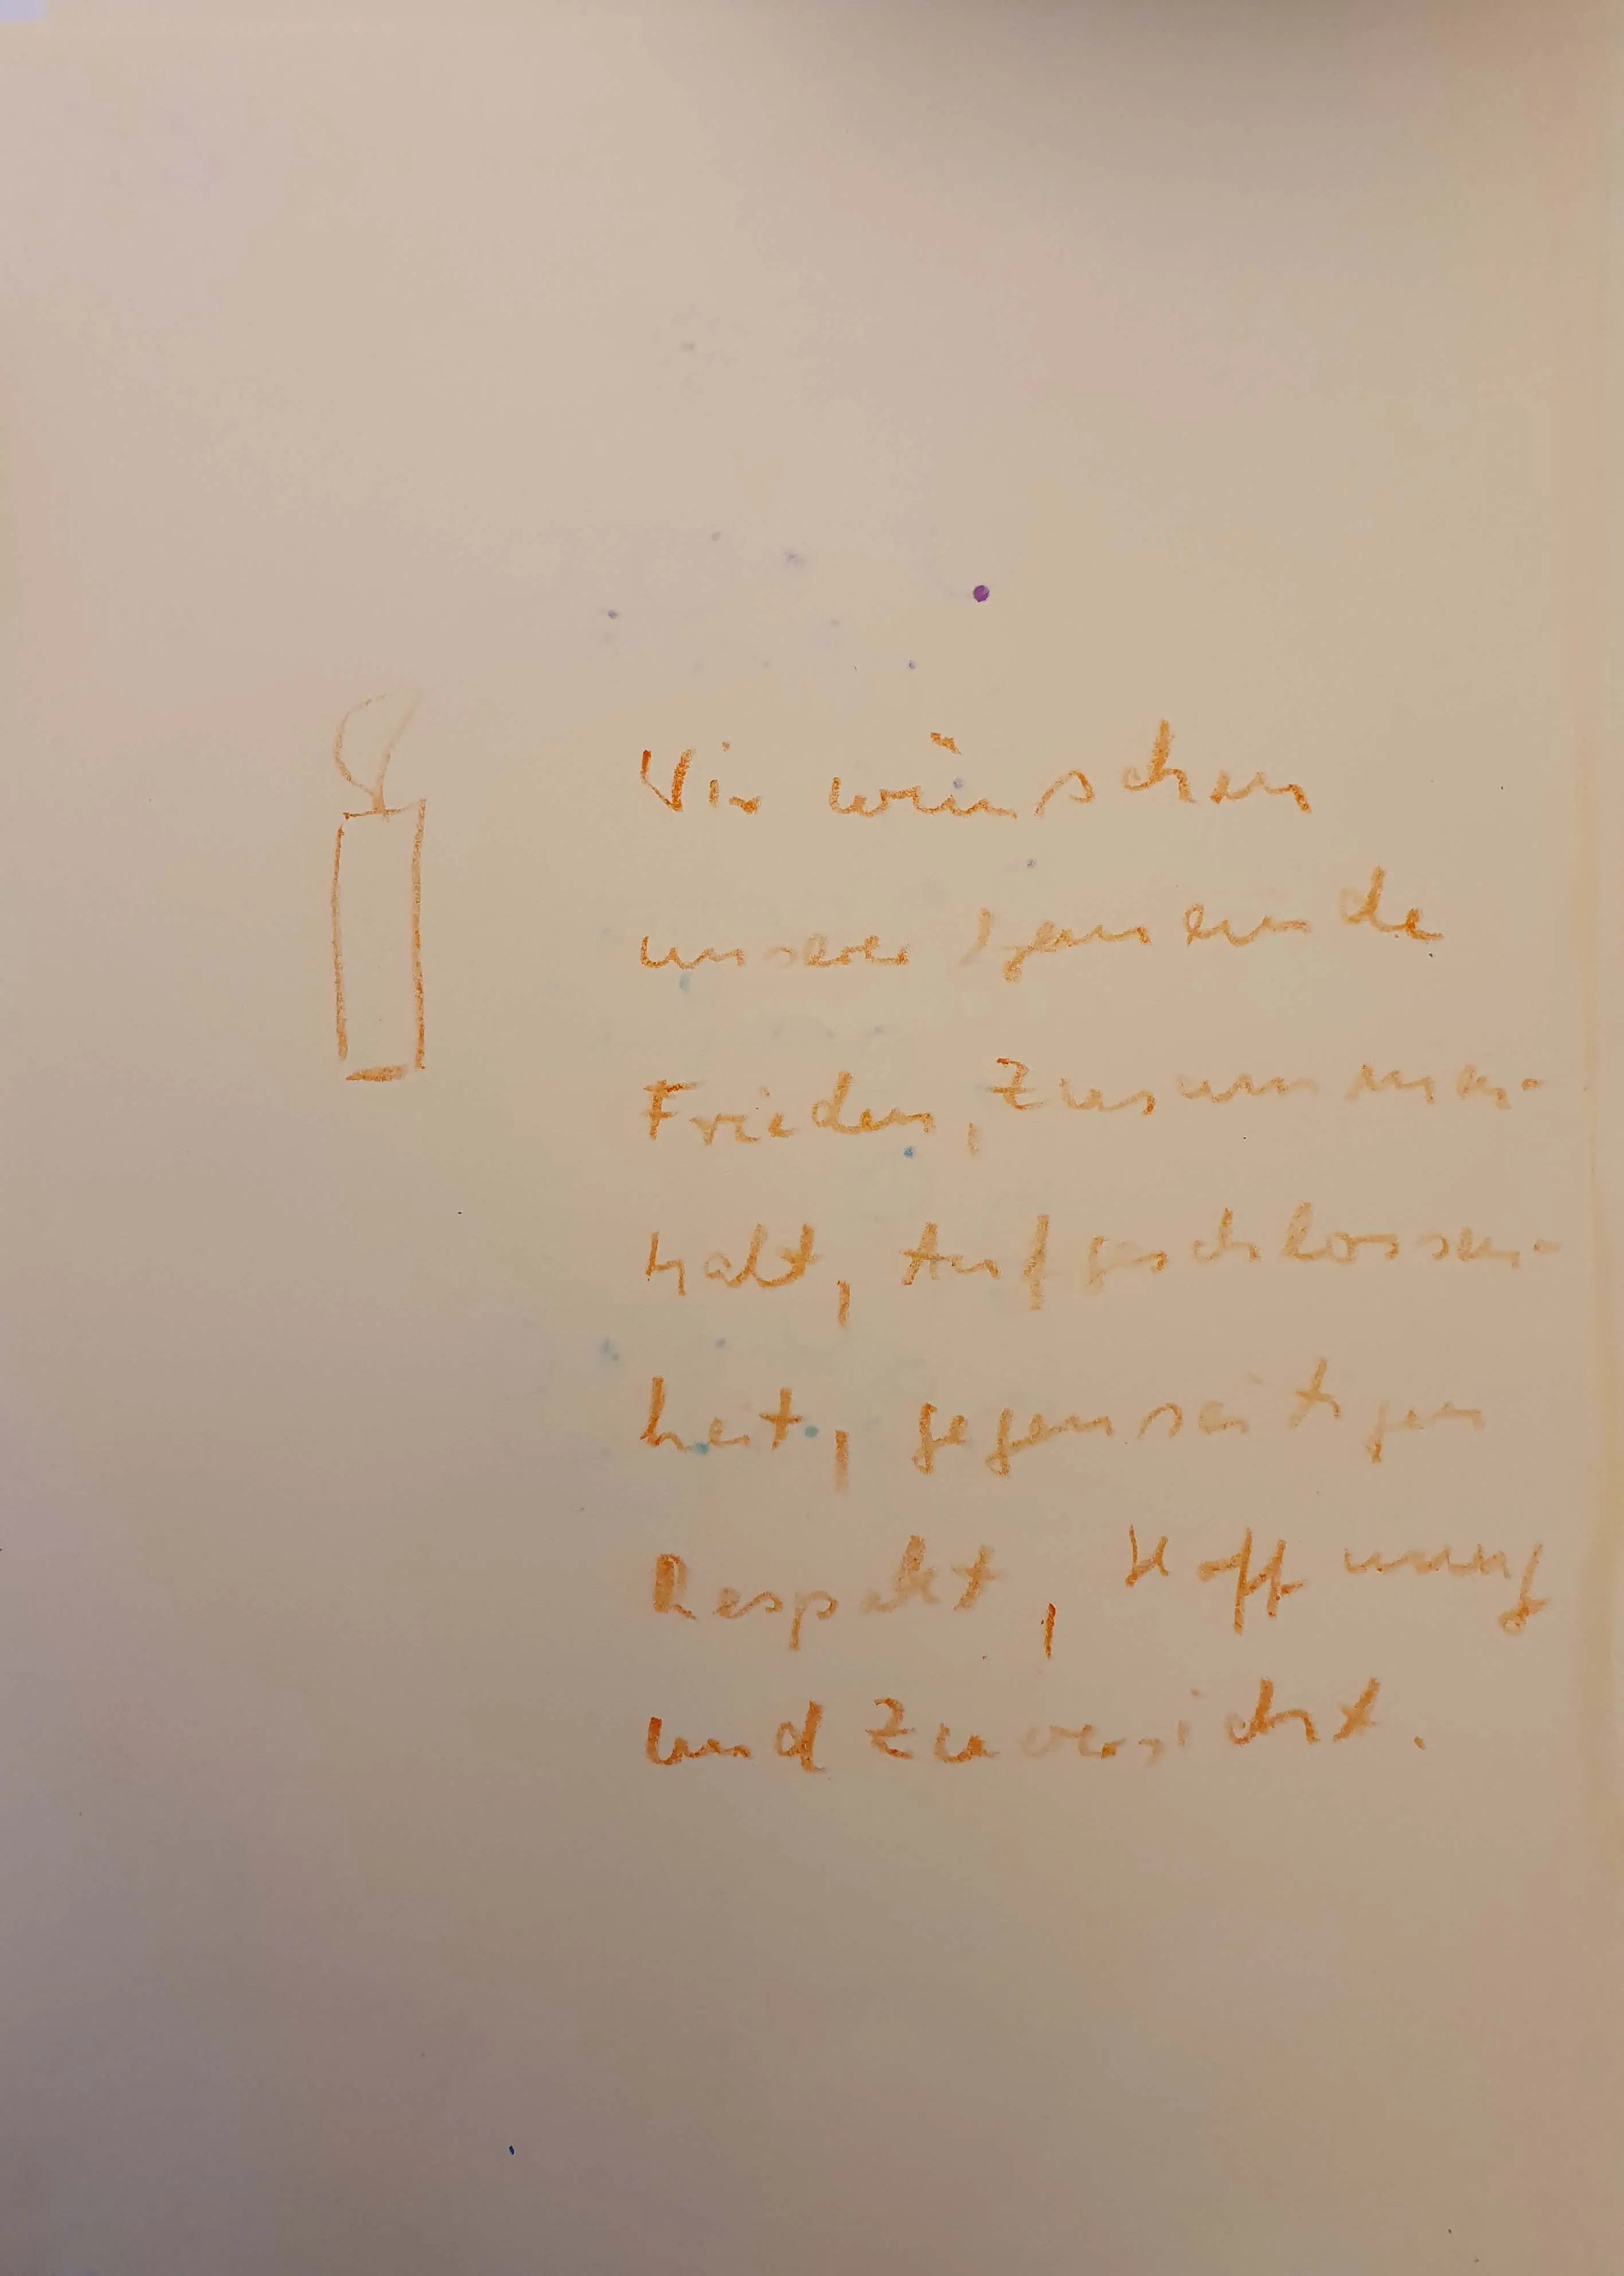 Wir wünschen
unserer Gemeinde
Frieden, Zusammen-
halt, Aufgeschlossen-
heit, gegenseitigen
Respekt, Hoffnung
und Zuversicht.